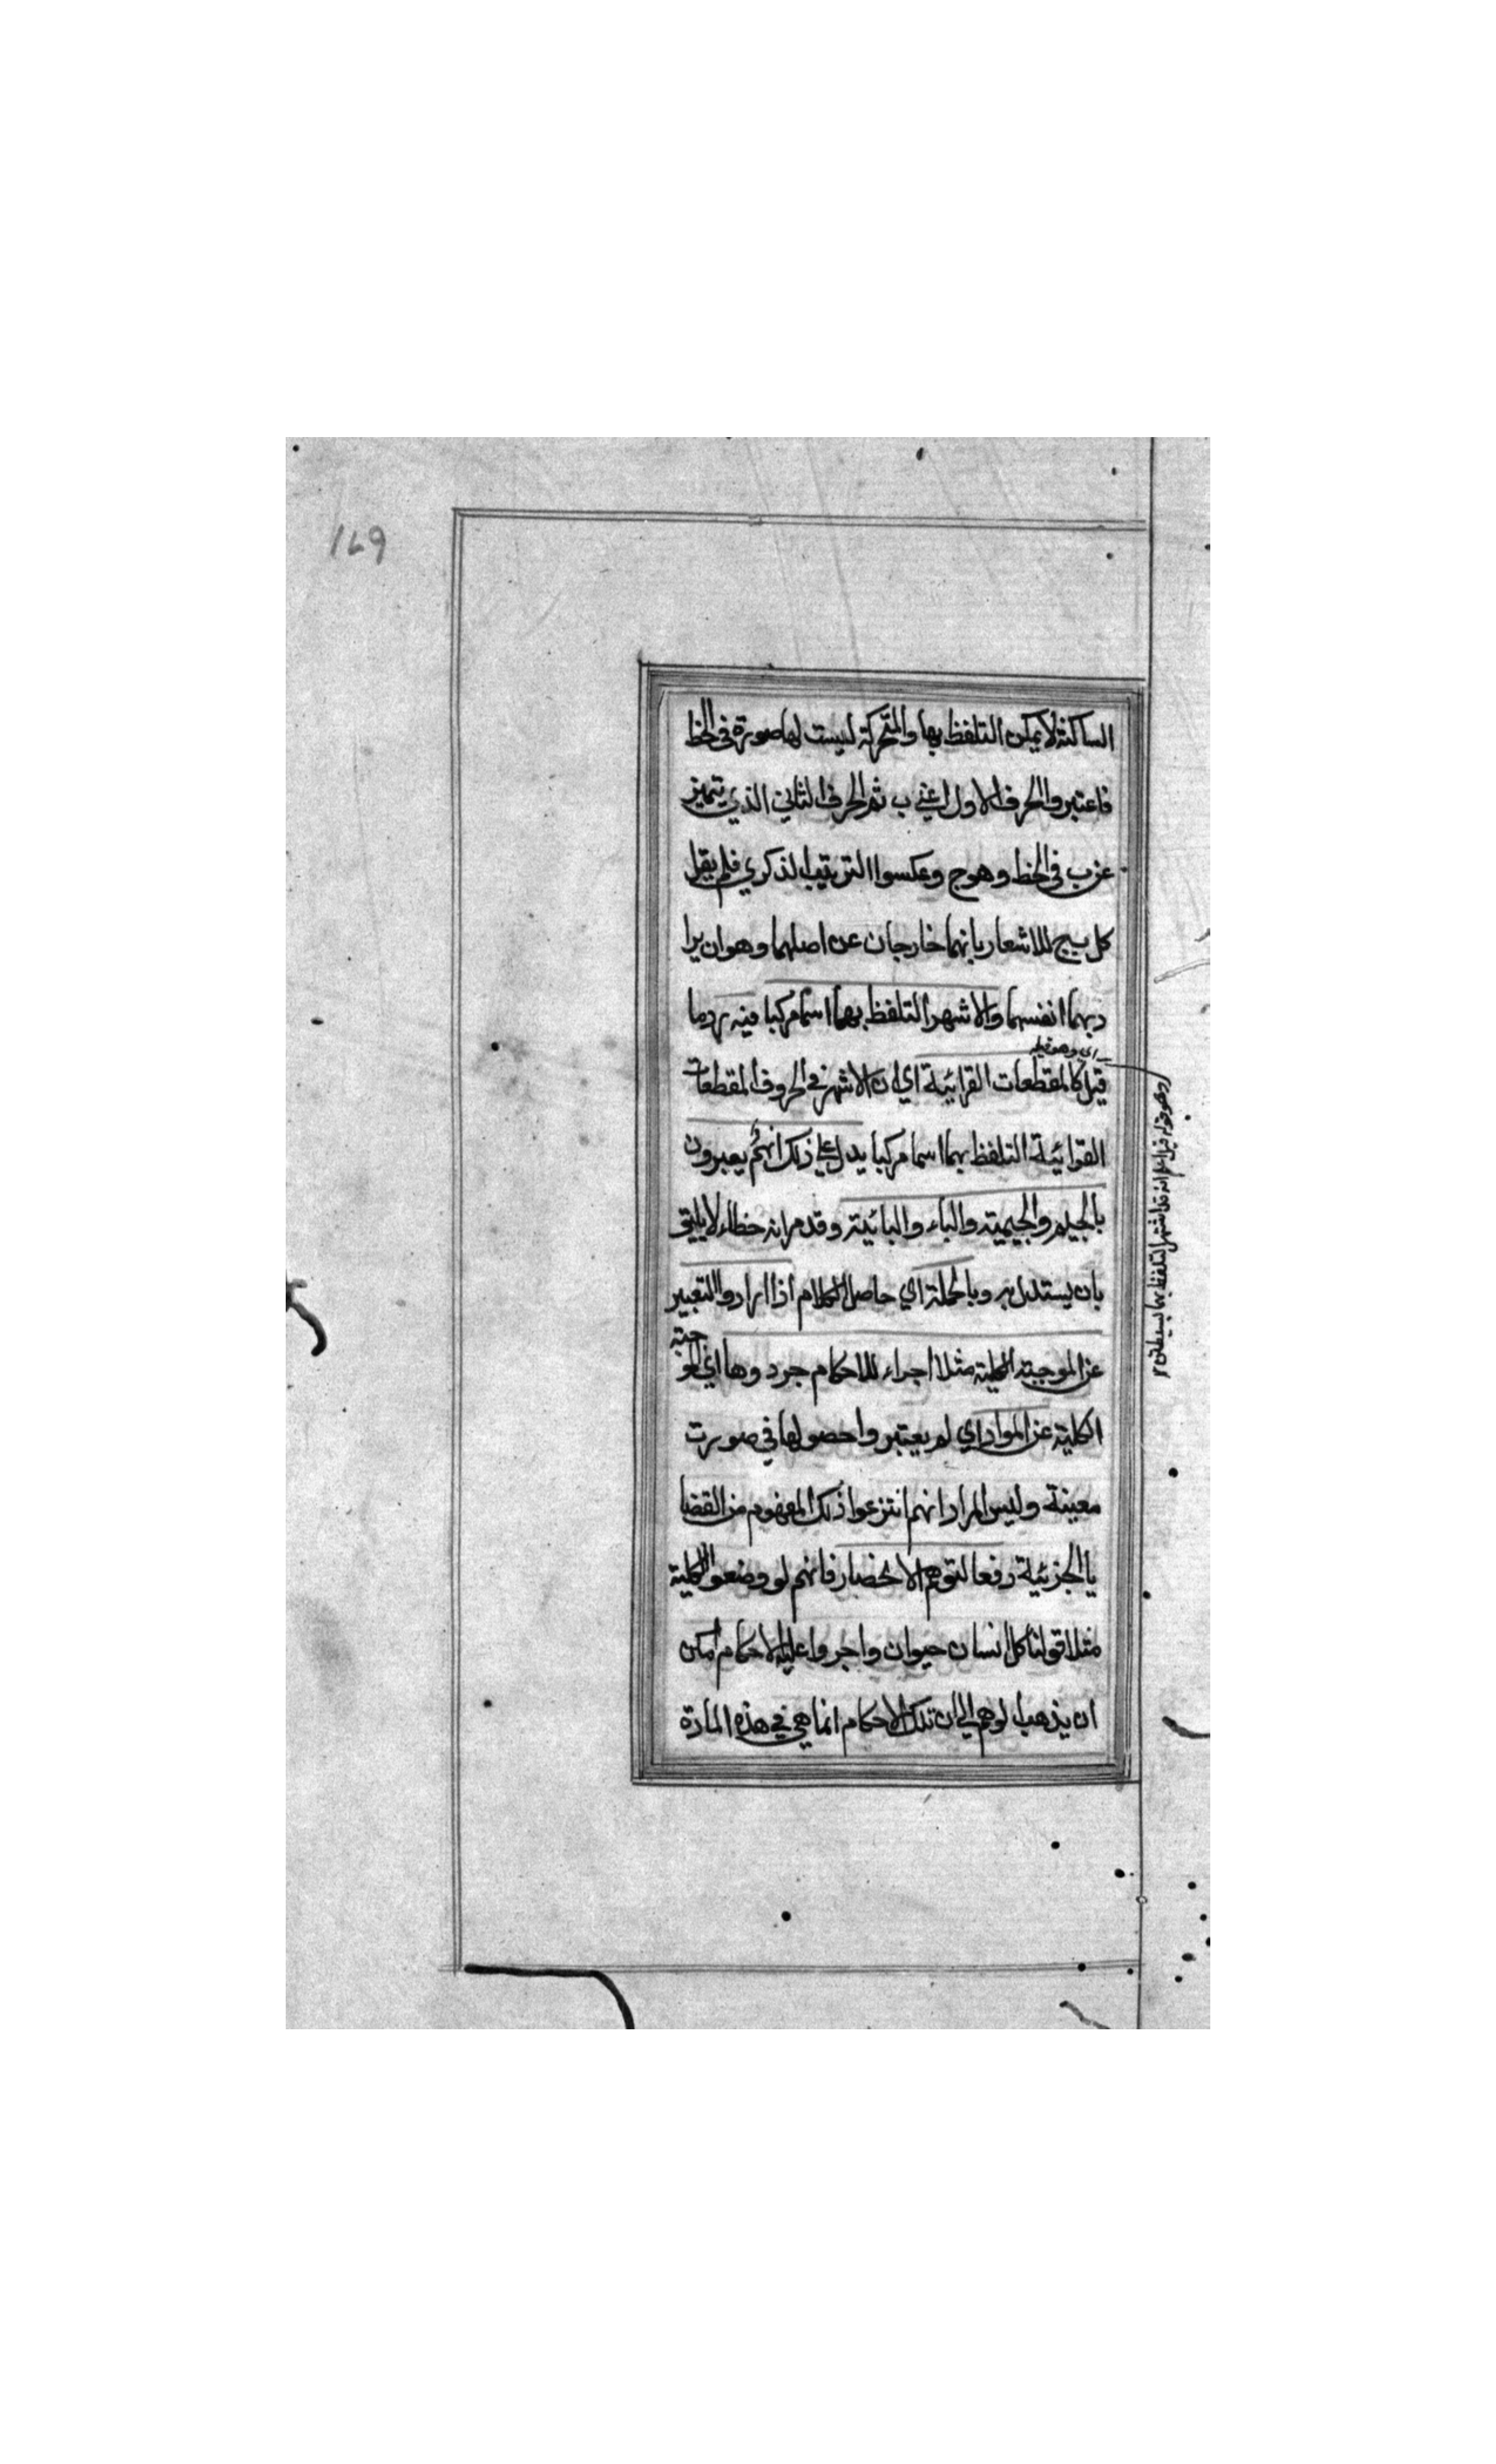 ١٦٩
الساكنة لا يمكن التلفظ بها والمتحركة ليست لها صورة فى الخط
فاعتبروا الحرف الاول اعني ب ثم الحرف الثاني الذي يتميز
عن ب فى الخط وهو ج وعكسوا الترتيب الذكري فلم يقل
كل بج للاشعار بانهما خارجان عن اصلهما وهو ان يرا
دبهما انفسهما والاشهر التلفظ بهما اسما مركبا فيه رد ما
اي وهو قيله
قيل كالمقطعات القرائية اي ان الاشهر في الحروف المقطعات
القرائية التلفظ بهما اسما مركبا يدل علي ذلك انهم يعبرون
بالجيم والجيمية والباء والبائية وقد مر انه خطاء لا يليق
بان يستدل به وبالجملة اي حاصل الكلام اذا ارادوا التعبير
عن الموجبة الكلية مثلا اجراء للاحكام جردوها اي المو
جبة
الكلية عن المواد اي لم يعتبروا حصولها في صورت
معينة وليس المراد انهم انتزعوا ذلك المفهوم من القضا
يا الجزئية دفعا لتوهم الانحصار فانهم لو وضعوا الكلية
مثلا قولنا كل انسان حيوان واجروا عليه الاحكام امكن
ان يذهب الوهم الي ان تلك الاحكام انما هي في هذه المادة
وهو قوله قيل اعلم انه قد اشتهر التلفظ بهما بسيطتين